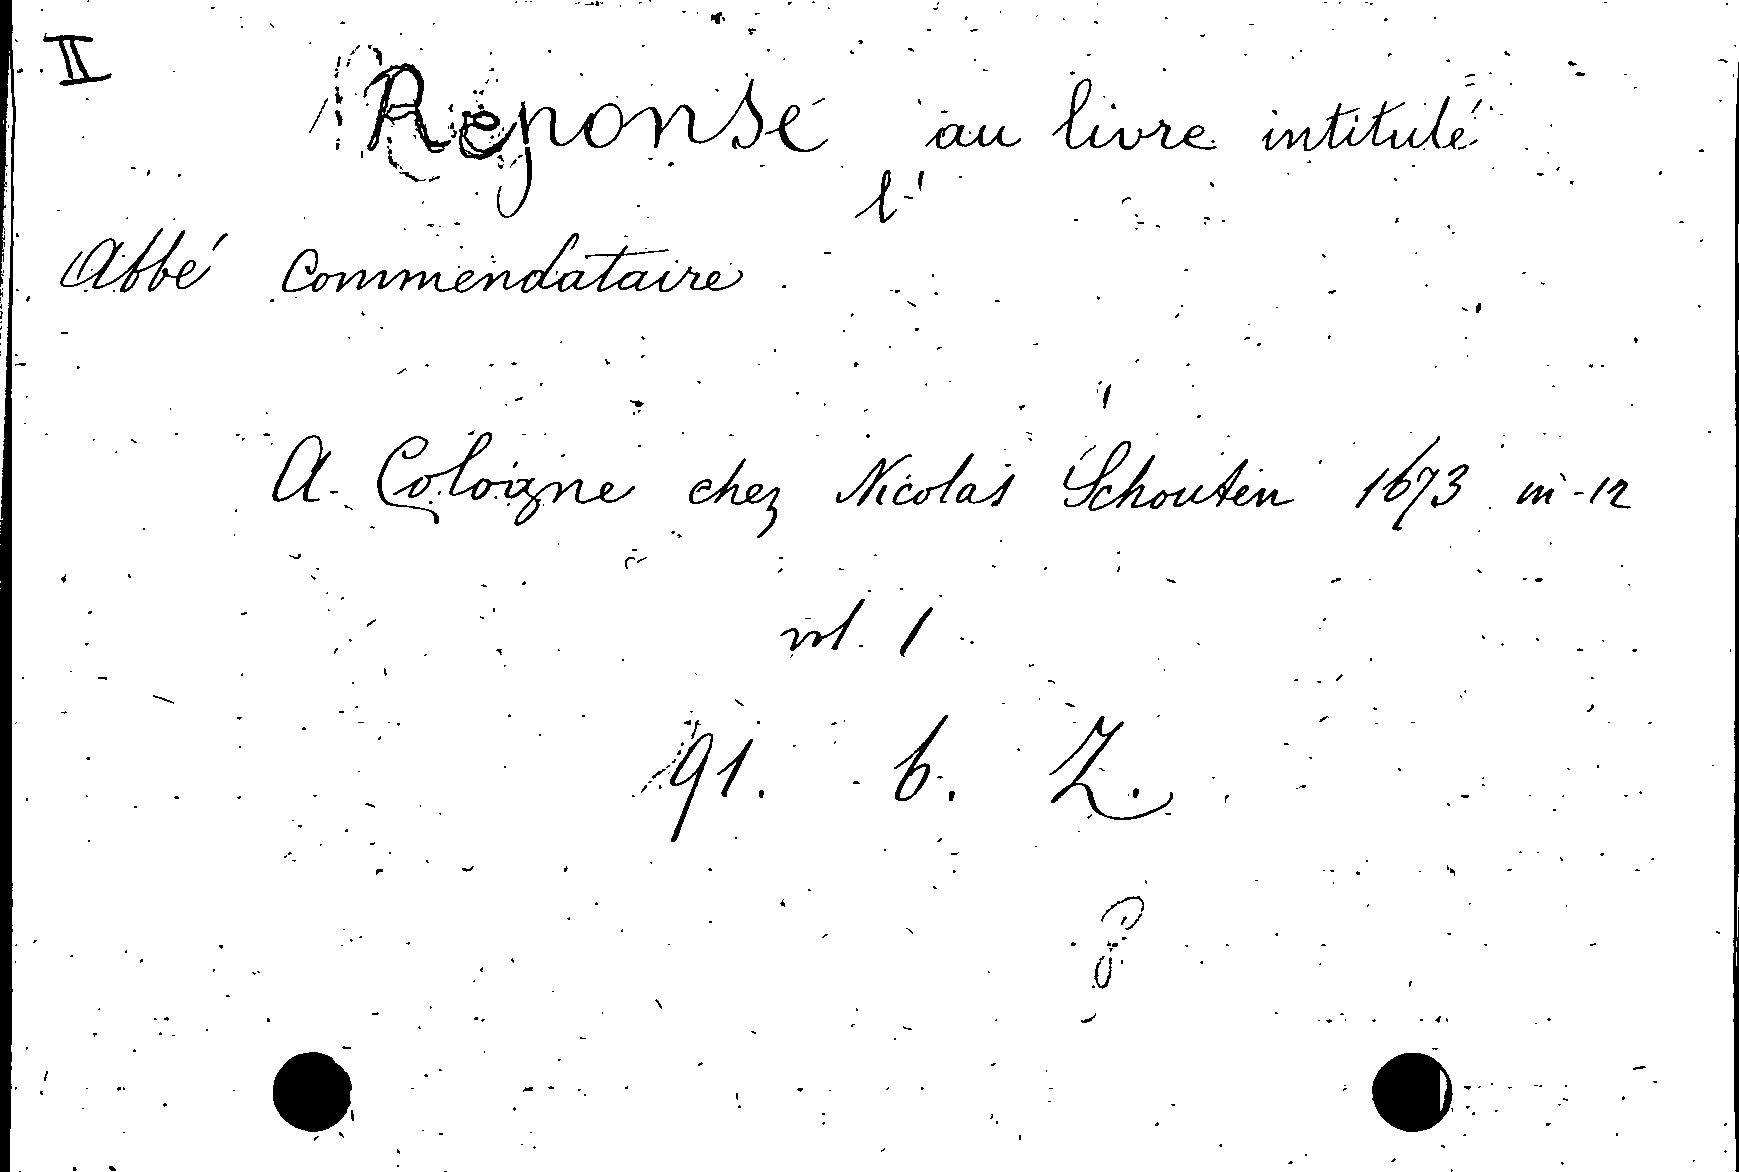 II
Reponse au livre intitulé
l'
Abbé Commendataire
A Cologne chez Nicolas Schouten 1673 in-12
vol. 1
91. b. Z.